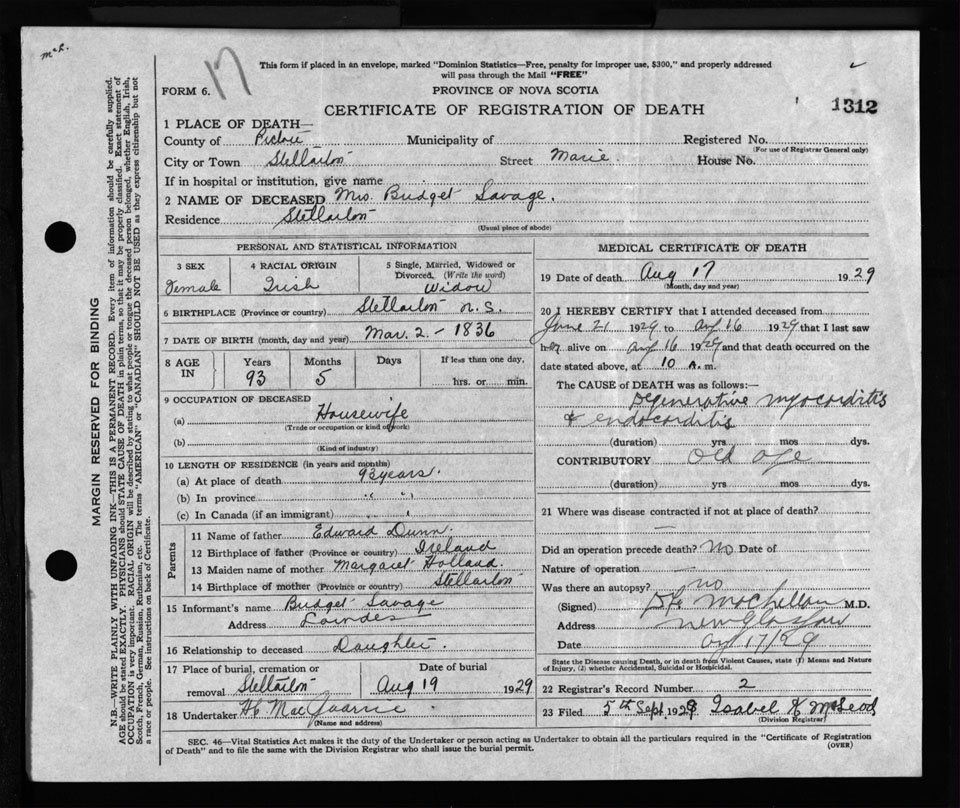 McR.
17
This form if placed in an envelope, marked "Dominion Statistics—Free, penalty for improper use, $300," and properly addressed
will pass through the Mail "FREE"
FORM 6.
PROVINCE OF NOVA SCOTIA
CERTIFICATE OF REGISTRATION OF DEATH
1312
1 PLACE OF DEATH—
County of Pictou Municipality of Registered No.
(For use of Registrar General only)
City or Town Stellarton Street Marie House No.
If in hospital or institution, give name
2 NAME OF DECEASED Mrs. Bridget Savage.
Residence Stellarton
(Usual place of abode)
PERSONAL AND STATISTICAL INFORMATION
3 SEX 4 RACIAL ORIGIN 5 Single, Married, Widowed or Divorced. (Write the word)
Female Irish Widow
6 BIRTHPLACE (Province or country) Stellarton N.S.
7 DATE OF BIRTH (month, day and year) Mar. 2 - 1836
8 AGE IN Years Months Days If less than one day,
93 5 hrs. or min.
9 OCCUPATION OF DECEASED
(a) Housewife
(Trade or occupation or kind of work)
(b)
(Kind of industry)
10 LENGTH OF RESIDENCE (in years and months)
(a) At place of death 93 years.
(b) In province " "
(c) In Canada (if an immigrant)
Parents
11 Name of father Edward Dunn.
12 Birthplace of father (Province or country) Ireland
13 Maiden name of mother Margaret Holland.
14 Birthplace of mother (Province or country) Stellarton
15 Informant's name Bridget Savage
Address
16 Relationship to deceased Daughter.
17 Place of burial, cremation or removal Stellarton
Date of burial Aug 19 1929
18 Undertaker H
(Name and address)
MEDICAL CERTIFICATE OF DEATH
19 Date of death Aug 17 1929
(Month, day and year)
20 I HEREBY CERTIFY that I attended deceased from
June 21 1929 to Aug 16 1929 that I last saw
her alive on Aug 16 1929 and that death occurred on the
date stated above, at 10 a.m.
The CAUSE of DEATH was as follows:—
Degenerative myocorditis
& endocorditis
(duration) yrs mos dys.
CONTRIBUTORY Old age
(duration) yrs mos dys.
21 Where was disease contracted if not at place of death?
—
Did an operation precede death? No Date of
Nature of operation —
Was there an autopsy? no
(Signed) M.D.
Address New Glasgow
Date 17/29
State the Disease causing Death, or in death from Violent Causes, state (1) Means and Nature
of Injury, (2) whether Accidental, Suicidal or Homicidal.
22 Registrar's Record Number 2
23 Filed 5th Sept 1929 Isabel K McLeod
(Division Registrar)
SEC. 46—Vital Statistics Act makes it the duty of the Undertaker or person acting as Undertaker to obtain all the particulars required in the "Certificate of Registration
of Death" and to file the same with the Division Registrar who shall issue the burial permit.
(OVER)
MARGIN RESERVED FOR BINDING
N.B.—WRITE PLAINLY WITH UNFADING INK—THIS IS A PERMANENT RECORD. Every item of information should be carefully supplied.
AGE should be stated EXACTLY. PHYSICIANS should STATE CAUSE OF DEATH in plain terms, so that it may be properly classified. Exact statement of
OCCUPATION is very important. RACIAL ORIGIN will be described by stating to what people or tongue the deceased person belonged, whether English, Irish,
Scotch, French, German, Russian, Ruthenian, etc. The terms "AMERICAN" or "CANADIAN" SHOULD NOT BE USED as they express citizenship but not
a race or people. See instructions on back of Certificate.